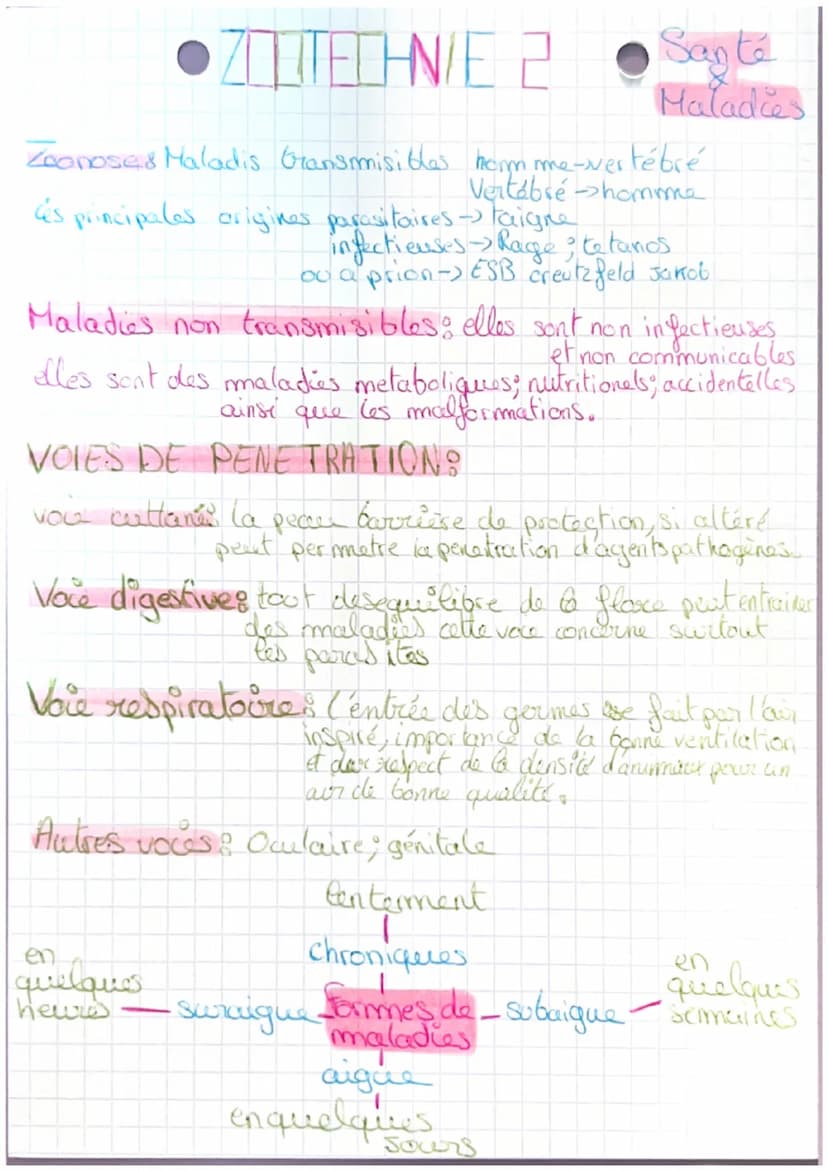 ZOOTECHNIE 2
Santé
&
Maladies
Zoonoses: Maladis transmisibles homme-vertébré
Vertébré -> homme
Les principales origines parasitaires -> taigne
infectieuses -> Rage; tetanos
ou a prion -> ESB creutzfeld Jakob
Maladies non transmisibles: elles sont non infectieuses
et non communicables
elles sont des maladies metaboliques; nutritionels; accidentelles
ainsi que les malformations.
VOIES DE PENETRATION:
voie cuttané: la peau barrière de protection, si altéré
peut permetre la penetration d'agents pathogènes
Voie digestive: tout desequilibre de la flore peut entrainer
des maladies cette voie concerne surtout
les parasites
Voie respiratoire: l'entrée des germes se fait par l'air
inspiré, importance de la bonne ventilation
et du respect de la densité d'animaux pour un
air de bonne qualité.
Autres voies: Oculaire; génitale
lentement
chroniques
en
quelques
heures
suraigue
formes de
maladies
subaigue
en
quelques
semaines
aigue
en quelques
jours